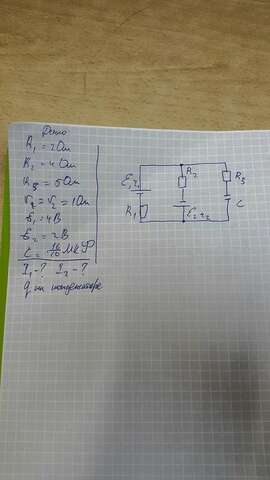 Дано
R₁ = 2 Ом
R₂ = 4 Ом
R₃ = 5 Ом
r₂ = r₁ = 1 Ом
ℰ₁ = 4 В
ℰ₂ = 2 В
C = мкФ
I₁ - ? I₂ - ?
q на конденсаторе
ℰ₁ r₁
R₂
R₃
R₁
ℰ₂ r₂
C